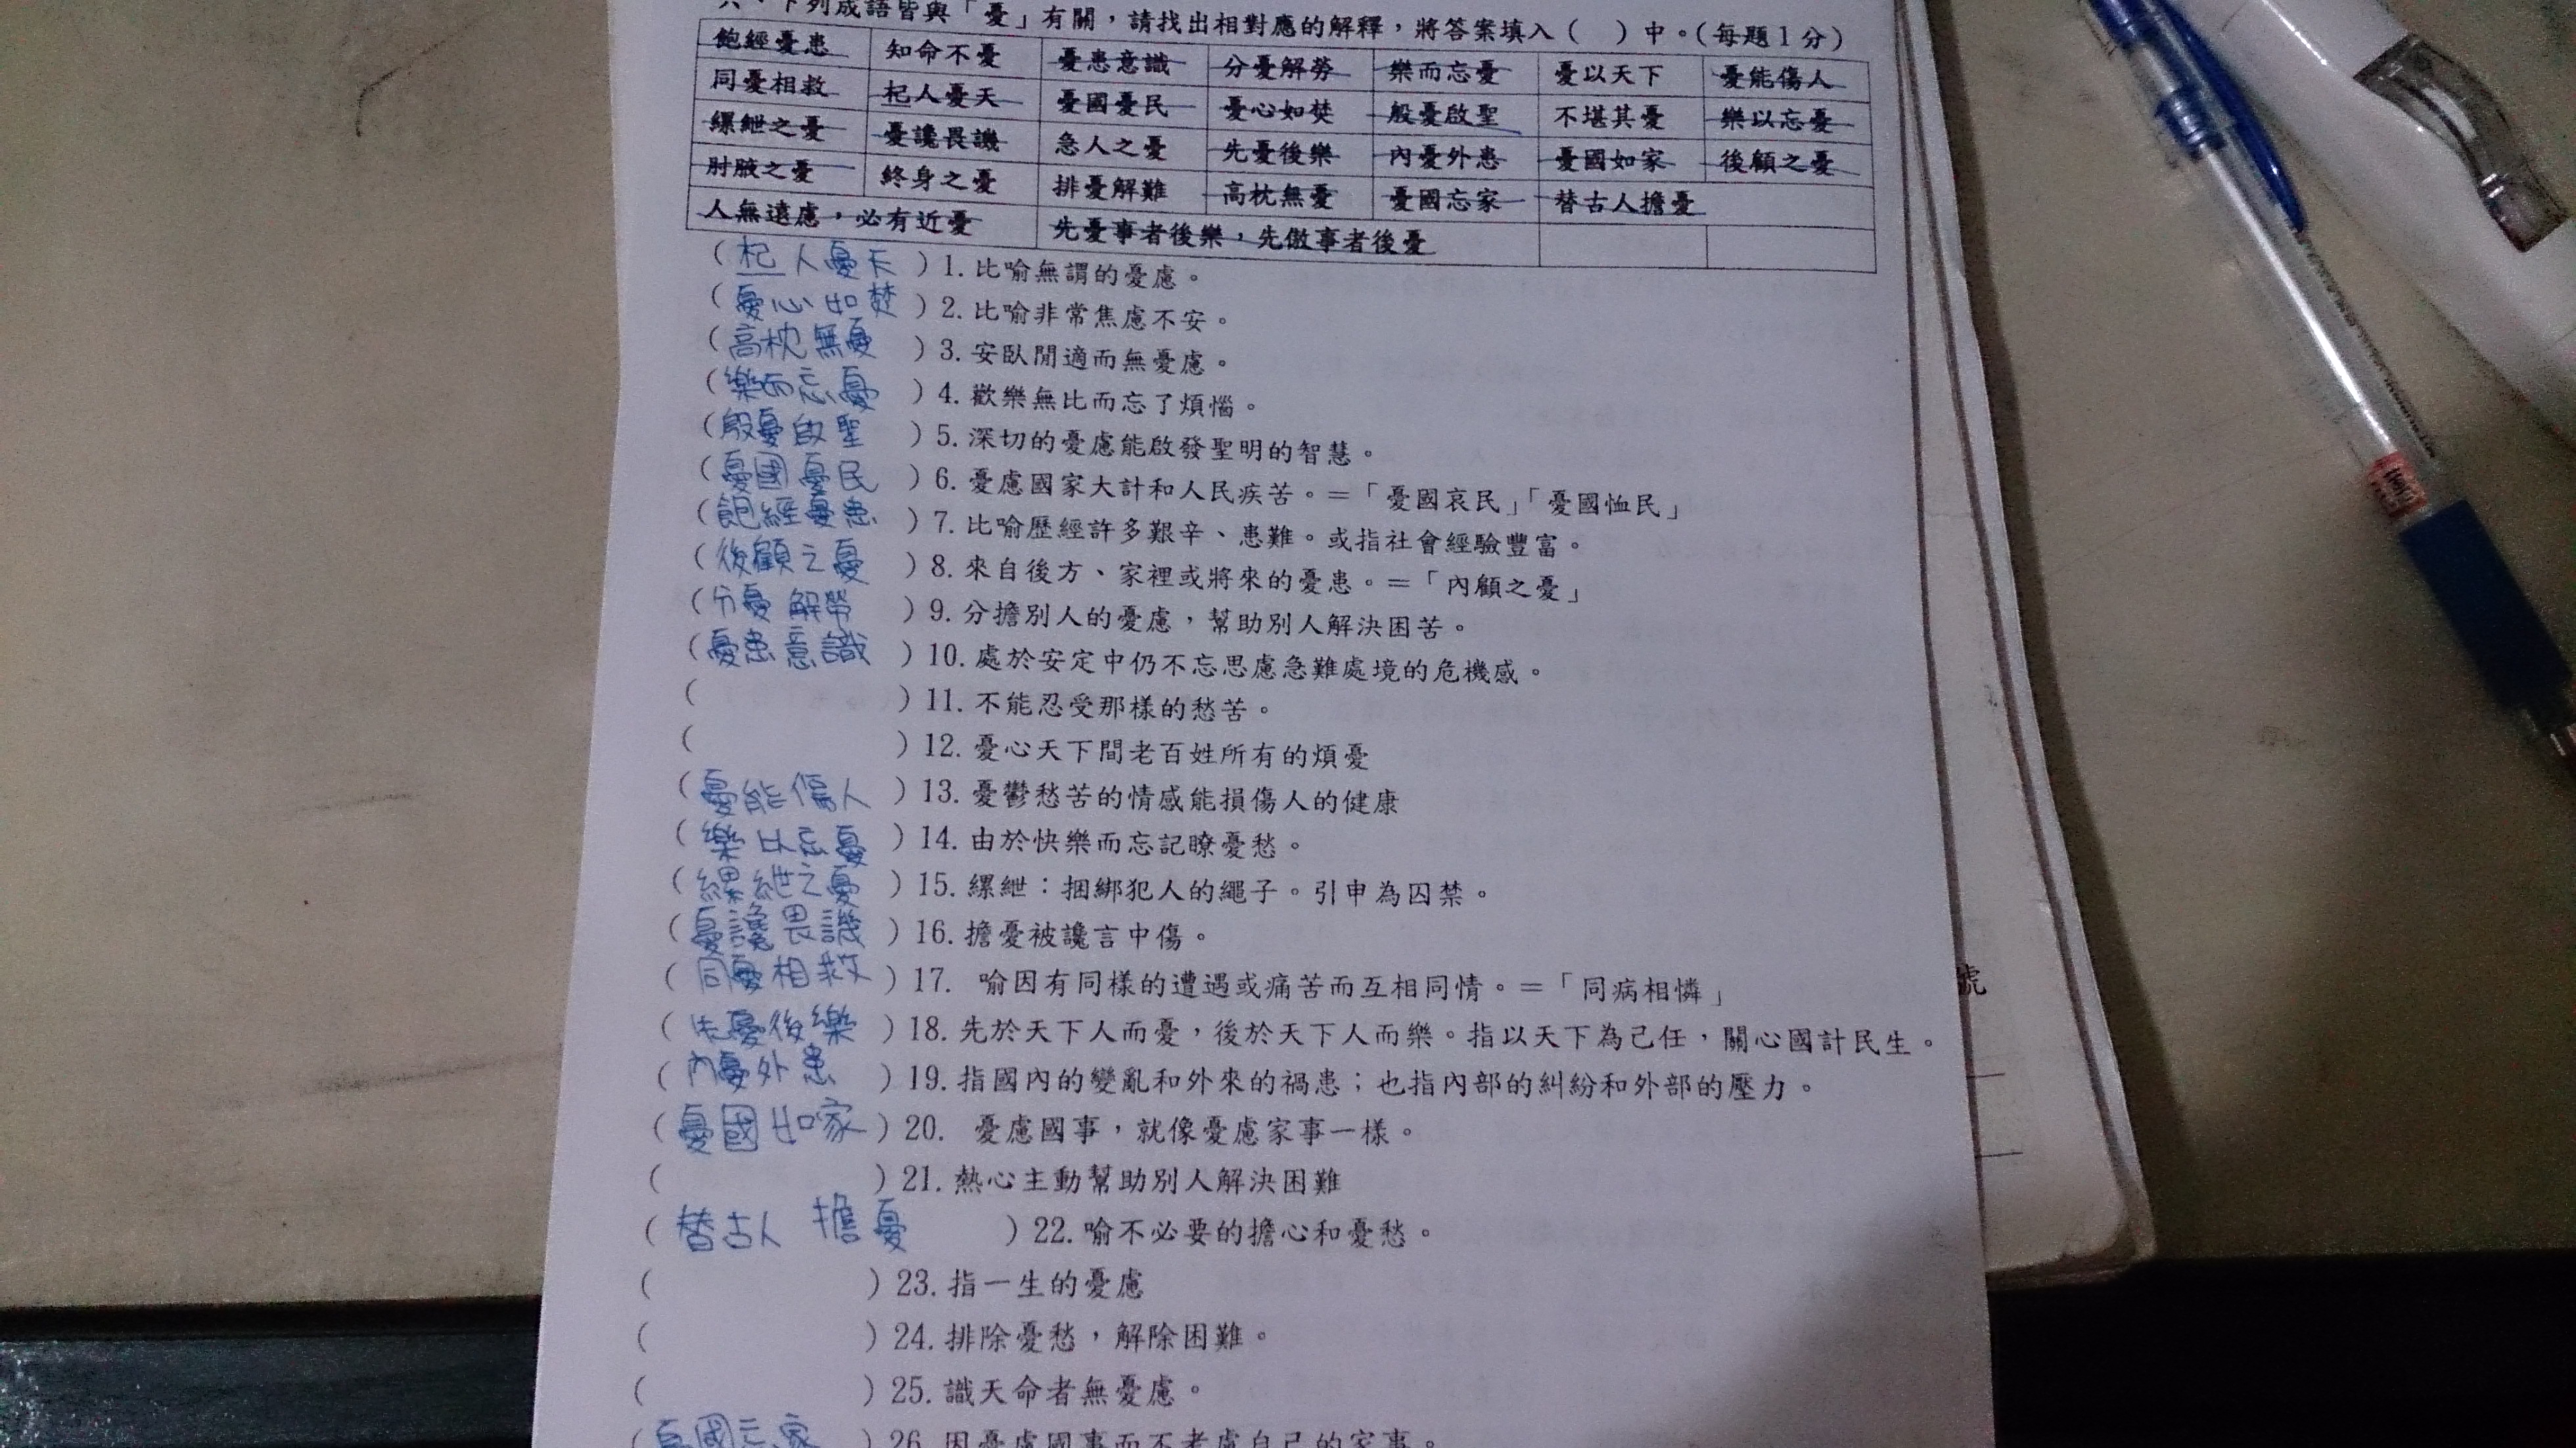 六、下列成語皆與「憂」有關，請找出相對應的解釋，將答案填入（　）中。（每題1分）
飽經憂患 知命不憂 憂患意識 分憂解勞 樂而忘憂 憂以天下 憂能傷人
同憂相救 杞人憂天 憂國憂民 憂心如焚 殷憂啟聖 不堪其憂 樂以忘憂
縲紲之憂 憂讒畏譏 急人之憂 先憂後樂 內憂外患 憂國如家 後顧之憂
肘腋之憂 終身之憂 排憂解難 高枕無憂 憂國忘家 替古人擔憂
人無遠慮，必有近憂 先憂事者後樂，先傲事者後憂
（杞人憂天）1.比喻無謂的憂慮。
（憂心如焚）2.比喻非常焦慮不安。
（高枕無憂）3.安臥閒適而無憂慮。
（樂而忘憂）4.歡樂無比而忘了煩惱。
（殷憂啟聖）5.深切的憂慮能啟發聖明的智慧。
（憂國憂民）6.憂慮國家大計和人民疾苦。＝「憂國哀民」「憂國恤民」
（飽經憂患）7.比喻歷經許多艱辛、患難。或指社會經驗豐富。
（後顧之憂）8.來自後方、家裡或將來的憂患。＝「內顧之憂」
（分憂解勞）9.分擔別人的憂慮，幫助別人解決困苦。
（憂患意識）10.處於安定中仍不忘思慮急難處境的危機感。
（　）11.不能忍受那樣的愁苦。
（　）12.憂心天下間老百姓所有的煩憂
（憂能傷人）13.憂鬱愁苦的情感能損傷人的健康
（樂以忘憂）14.由於快樂而忘記瞭憂愁。
（縲紲之憂）15.縲紲：捆綁犯人的繩子。引申為囚禁。
（憂讒畏譏）16.擔憂被讒言中傷。
（同憂相救）17. 喻因有同樣的遭遇或痛苦而互相同情。＝「同病相憐」
（先憂後樂）18.先於天下人而憂，後於天下人而樂。指以天下為己任，關心國計民生。
（內憂外患）19.指國內的變亂和外來的禍患；也指內部的糾紛和外部的壓力。
（憂國如家）20. 憂慮國事，就像憂慮家事一樣。
（　）21.熱心主動幫助別人解決困難
（替古人擔憂）22.喻不必要的擔心和憂愁。
（　）23.指一生的憂慮
（　）24.排除憂愁，解除困難。
（　）25.識天命者無憂慮。
（憂國忘家）26.因憂慮國事而不考慮自己的家事。
號